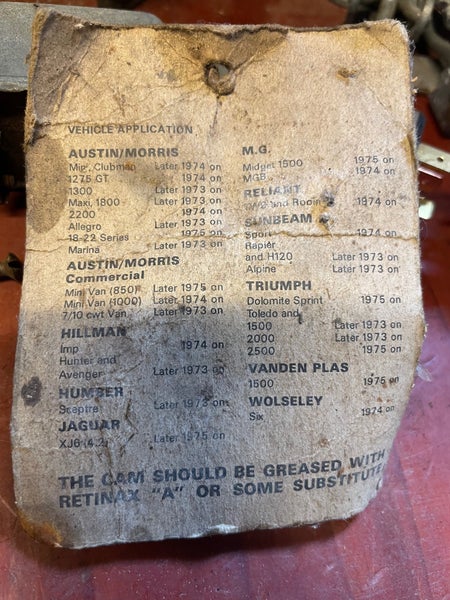 VEHICLE APPLICATION
AUSTIN/MORRIS
Mini, Clubman Later 1974 on
1275 GT 1974 on
1300 Later 1973 on
Maxi, 1800 Later 1973 on
2200 1974 on
Allegro Later 1973 on
18-22 Series 1975 on
Marina Later 1973 on
AUSTIN/MORRIS
Commercial
Mini Van (850) Later 1975 on
Mini Van (1000) Later 1974 on
7/10 cwt Van Later 1973 on
HILLMAN
Imp 1974 on
Hunter and
Avenger Later 1973 on
HUMBER
Sceptre Later 1973 on
JAGUAR
XJ6 (4.2) Later 1975 on
M.G.
Midget 1500 1975 on
MGB 1974 on
RELIANT
and Robin 1974 on
SUNBEAM
Sport 1974 on
Rapier
and H120 Later 1973 on
Alpine Later 1973 on
TRIUMPH
Dolomite Sprint 1975 on
Toledo and
1500 Later 1973 on
2000 Later 1973 on
2500 1975 on
VANDEN PLAS
1500 1975 on
WOLSELEY
Six 1974 on
THE CAM SHOULD BE GREASED WITH
RETINAX "A" OR SOME SUBSTITUTE